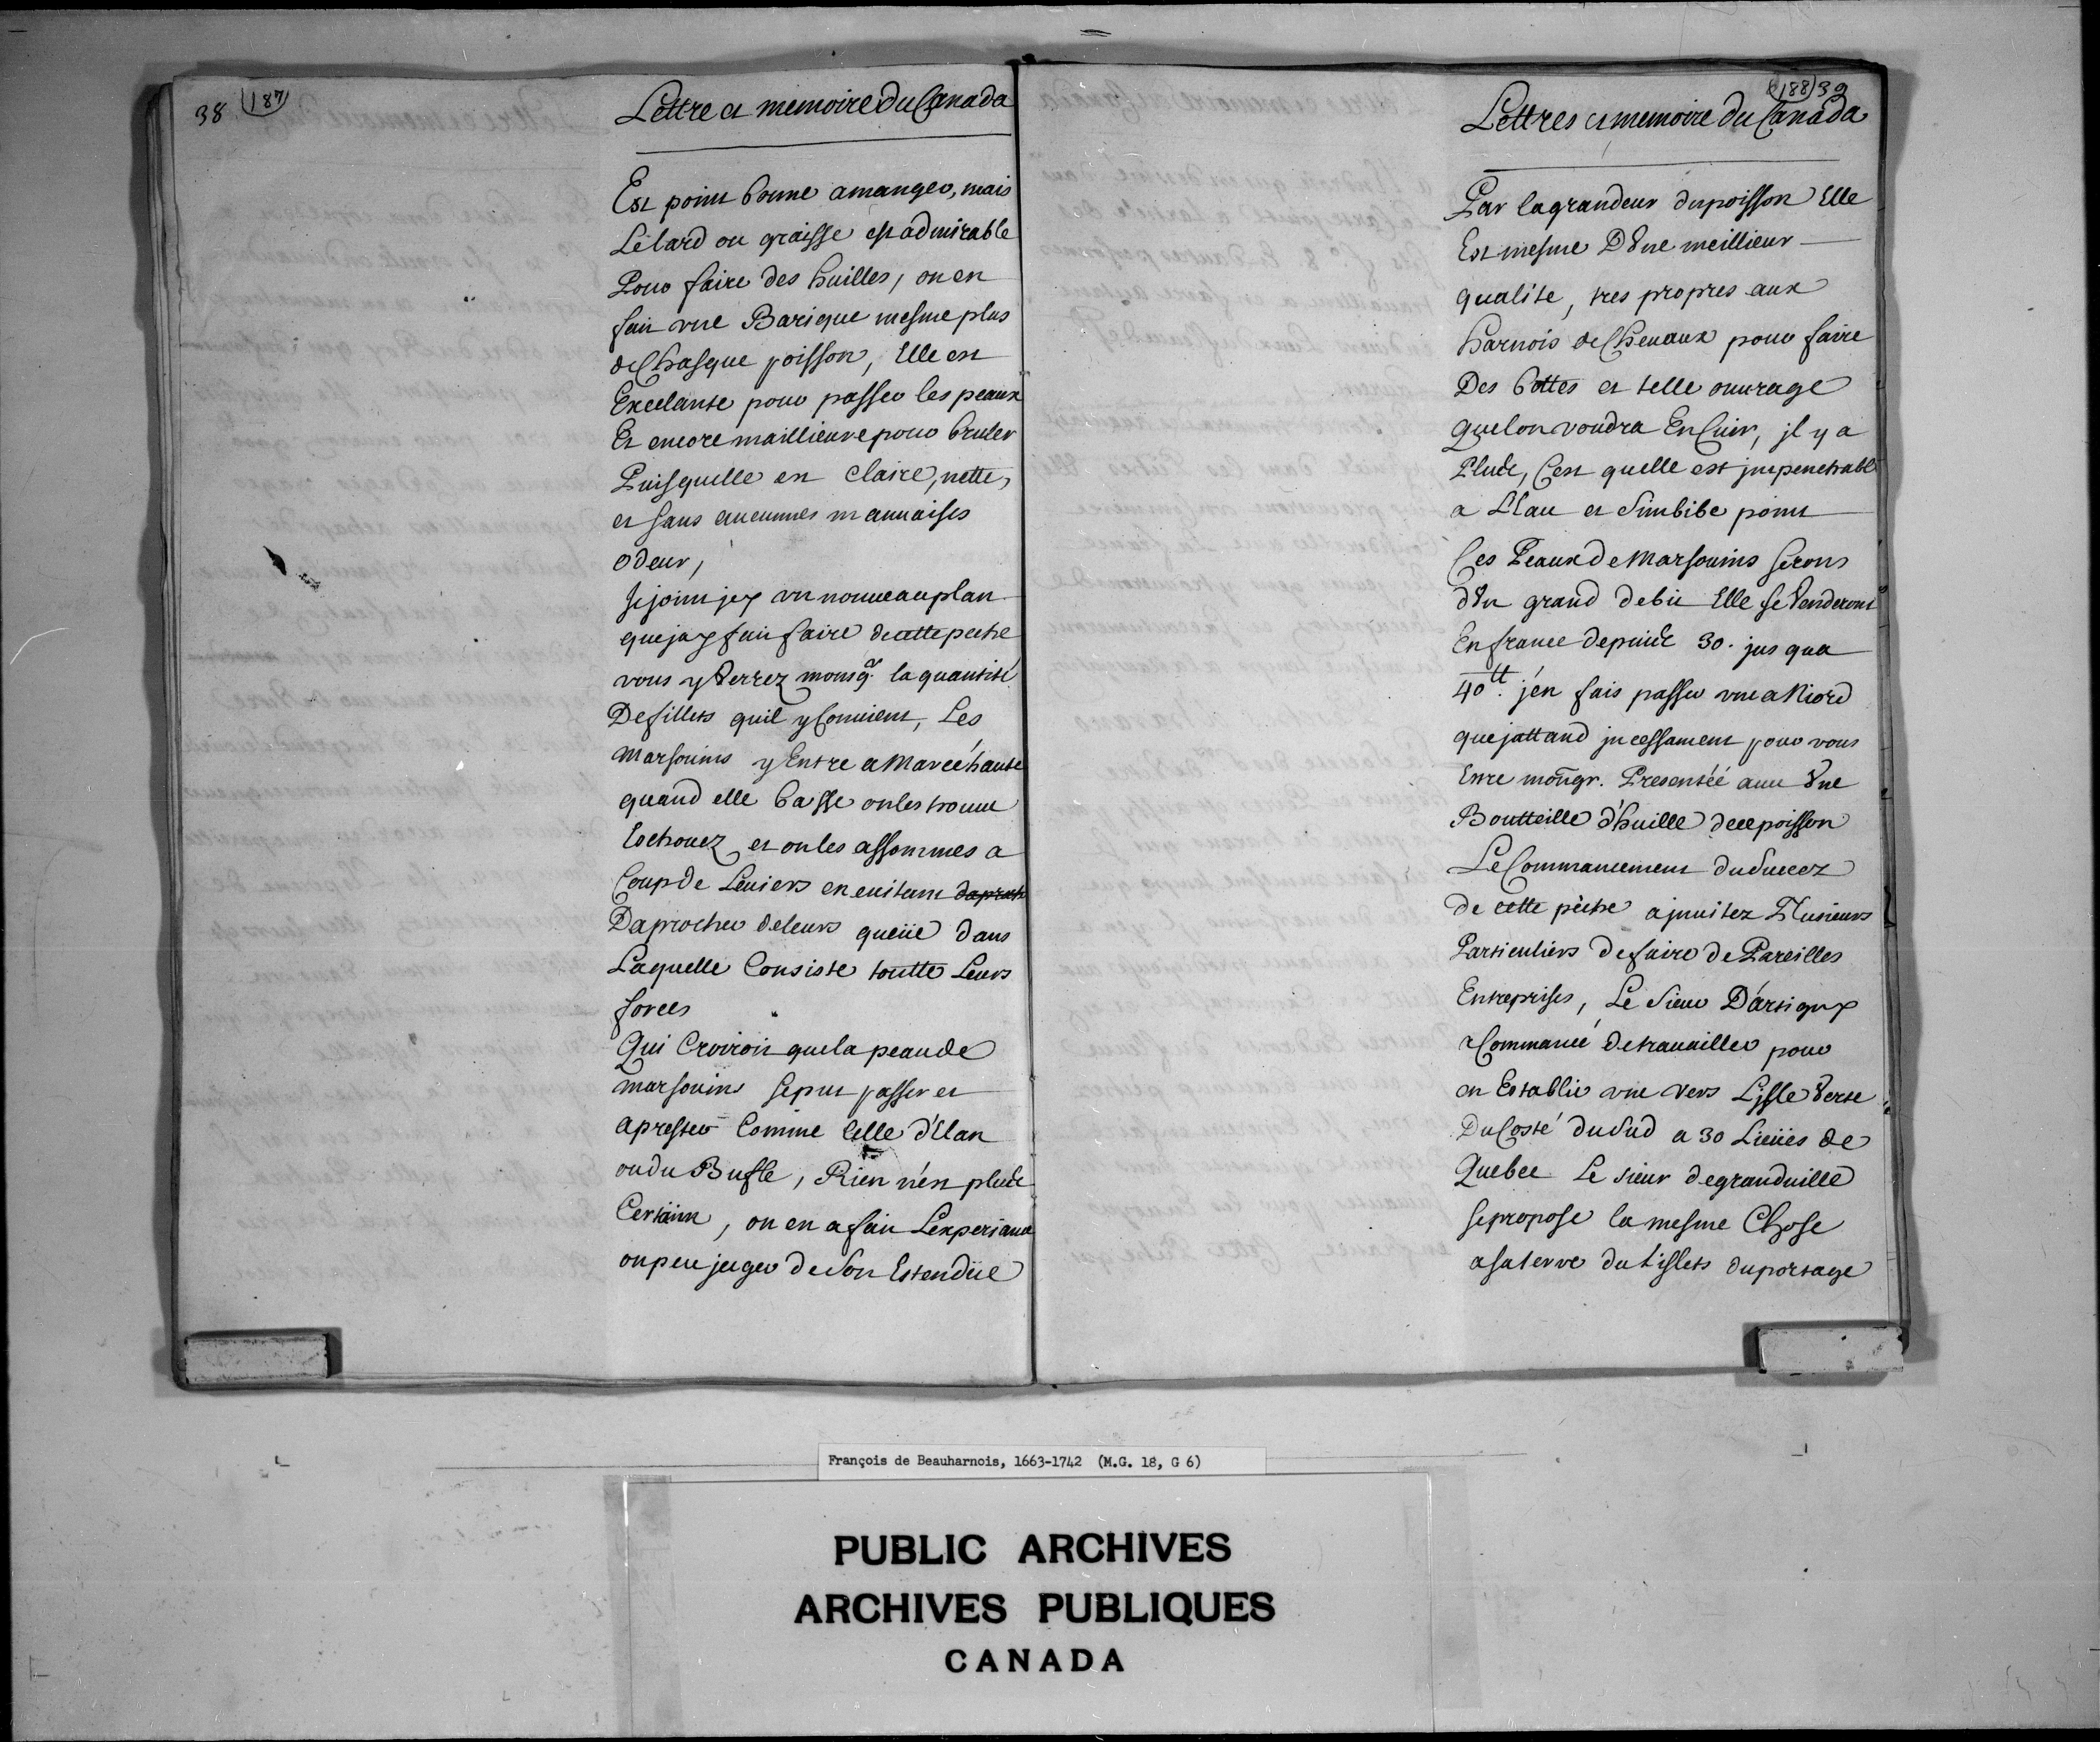 38 187
Lettre et memoire du Canada
Est point bonne amanger, mais
Lélard ou graisse est admirable
Pour faire des huilles, on en
fait vne Barique mesme plus
de Chasque poisson, Elle est
Excelante pour passer les peaux
Et encore maillieure pour bruler
Puisquelle est claire, nette,
et sans aucunnes mauuaises
odeur,
Je joint jcy vn nouueau plan
que jay fait faire de cette peche
vous y verrez monsgr. la quantité
De fillets quil y Conuient, Les
marsouins y Entre a Marée haute
quand elle basse on les trouue
Eschouez et on les assommes a
Coup de Leuiers en euitant daproch
Daprocher de leurs queüe dans
Laquelle Consiste toutte Leurs
forces
Qui Croiroit que la peau de
marsouins se put passer et
aprester Comme Celle d'Elan
ou du Bufle, Rien n'est plus de
Certain, on en a fait Lexperiance
on peu juger de son Estendüe
188 39
Lettres et memoire du Canada
Par la grandeur du poisson Elle
Est mesme D'vne meillieur
qualité, tres propres aux
harnois de Cheuaux pour faire
Des bottes et telle ouurage
que lon voudra En Cuir, jl y a
Plus de, C'est quelle est jmpenetrable
a L'Eau et s'imbibe point
Ces Peaux de Marsouins serons
d'vn grand debit Elle se venderont
En france depuis de 30. jusqua
40tt. j'en fais passer vne a Niord
que jattand jncessament pour vous
Estre mongr. Presentéé auec vne
Boutteille d'huille de ce poisson
Le Commancement du succez
de cette pêche a jnuitez Plusieurs
Particuliers de faire de Pareilles
Entreprises, Le sieur D'artigny
a Commancé de trauailler pour
en Establir vne vers Lisle verte
Du Costé du sud a 30 Lieües de
Quebec Le sieur de granduille
se propose la mesme Chose
a sa terre du Lislets du portage
François de Beauharnois, 1663-1742 (M.G. 18, G 6)
PUBLIC ARCHIVES
ARCHIVES PUBLIQUES
CANADA